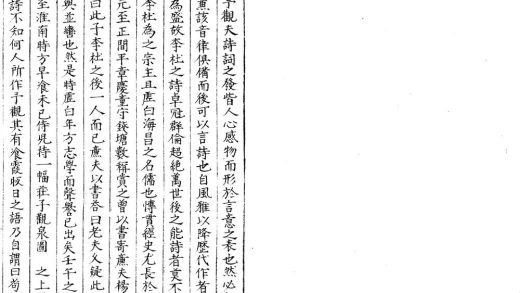 予觀夫詩詞之發皆人心感物而形於言意之表也然必
兼該音律俱備而後可以言詩也自風雅以降歷代作者
為盛故李杜之詩卓冠群倫超絕萬世後之能詩者莫不
李杜為之宗主且虛白海昌之名儒也慱貫經史尤長於
元至正間平章慶童守錢塘數稱賞之曽以書寄鹿夫楊
曰此子李杜之後一人而已鹿夫以書荅曰老夫久疑此
與並轡也然是時虛白年方志學而聲譽已出矣壬午之
至淮南時方旱飡未已侍児持一幅莊子觀泉圖 之上
詩不知何人所作予觀其有飡霞咽日之語乃自謂曰苟